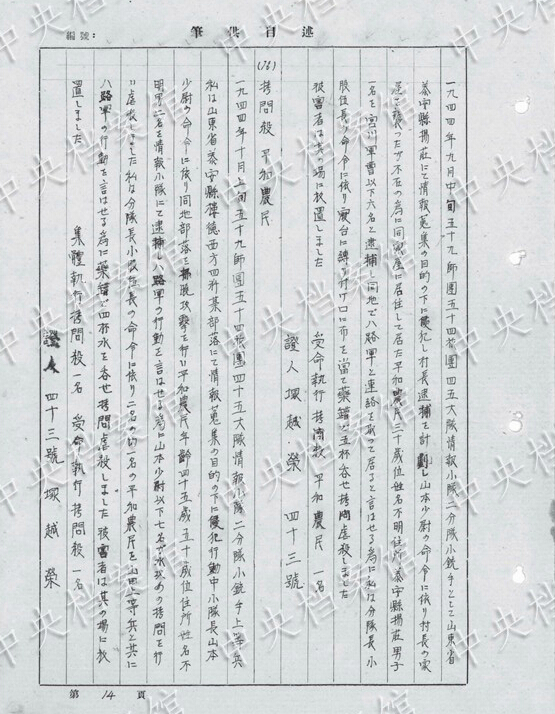 編號：
筆供自述
一九四四年九月中旬五十九師團五十四旅團四五大隊情報小隊二分隊小銃手として山東省
泰安縣揚莊にて情報蒐集の目的の下に侵犯し村長逮捕を計劃し山本少尉の命令に依り村長の家
を襲ったが不在の為に同家屋に居住して居た平和農民三十歲位姓名不明住所泰安縣揚莊男子
一名を宮川軍曹以下六名と逮捕し同地で八路軍と連絡を取って居ると言はせる為に私は分隊長小
股伍長の命令に依り台に縛り付け口に布を当て藥罐で五杯呑せ拷問虐殺しました
被害者は其の場に放置しました
受命執行拷問殺平和農民一名
證人堀越榮四十三號
(16)
拷問殺平和農民
一九四四年十月上旬五十九師團五十四旅團四十五大隊情報小隊二分隊小銃手上等兵
私は山東省泰安縣德西方四粁某部落にて情報蒐集の目的の下に侵犯行動中小隊長山本
少尉の命令に依り同地部落を攻擊を行い平和農民年齡四十五歲五十歲位住所姓名不
明男二名を情報小隊にて逮捕し八路軍の行動を言はせる為に山本少尉以下七名が水攻めの拷問を行
い虐殺しました私は分隊長小股伍長の命令に依り二名の内一名の平和農民を山田上等兵と共に
八路軍の行動を言はせる為に藥罐で四杯水を呑せ拷問虐殺しました被害者は其の場に放
置しました
集體執行拷問殺一名受命執行拷問殺一名
證人四十三號堀越榮
第14頁
中央档案馆